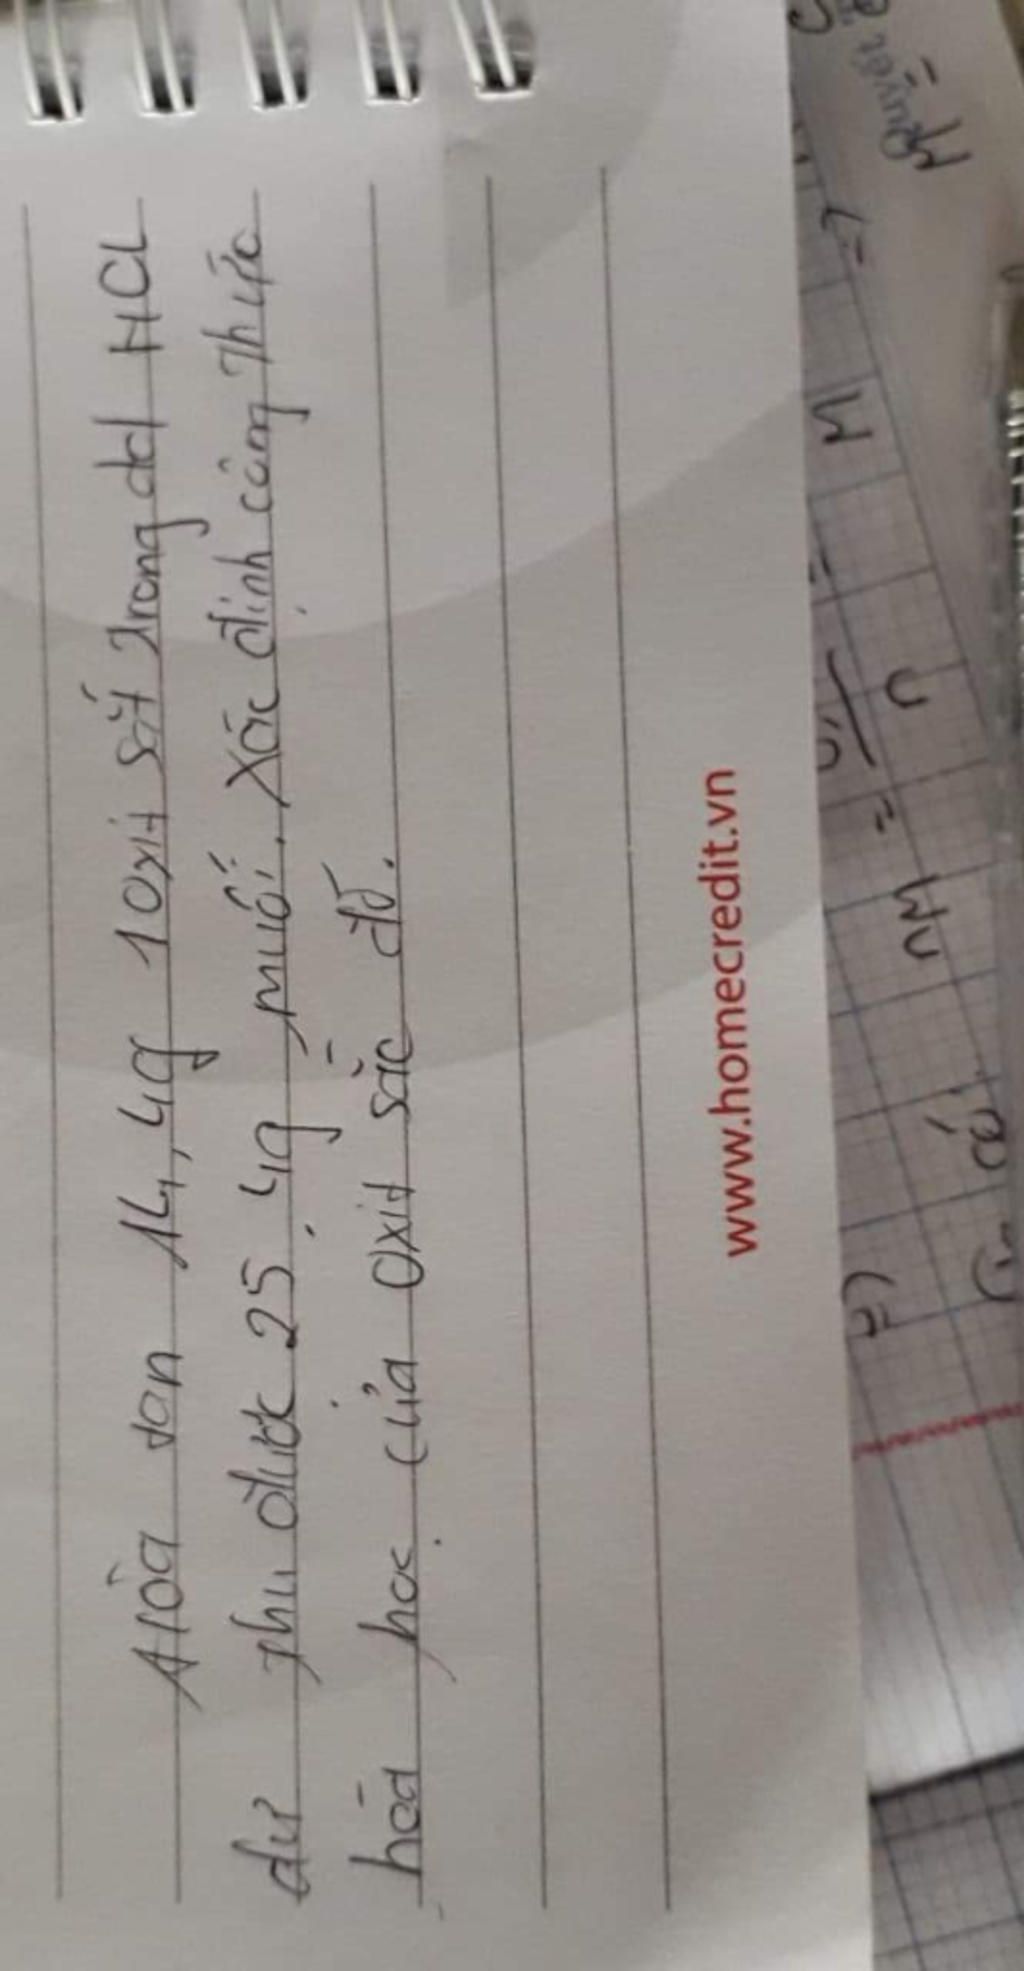 Hòa tan 14,4g 1 oxit sắt trong dd HCl
dư thu được 25,4g muối. Xác định công thức
hóa học của oxit sắc đó.
www.homecredit.vn